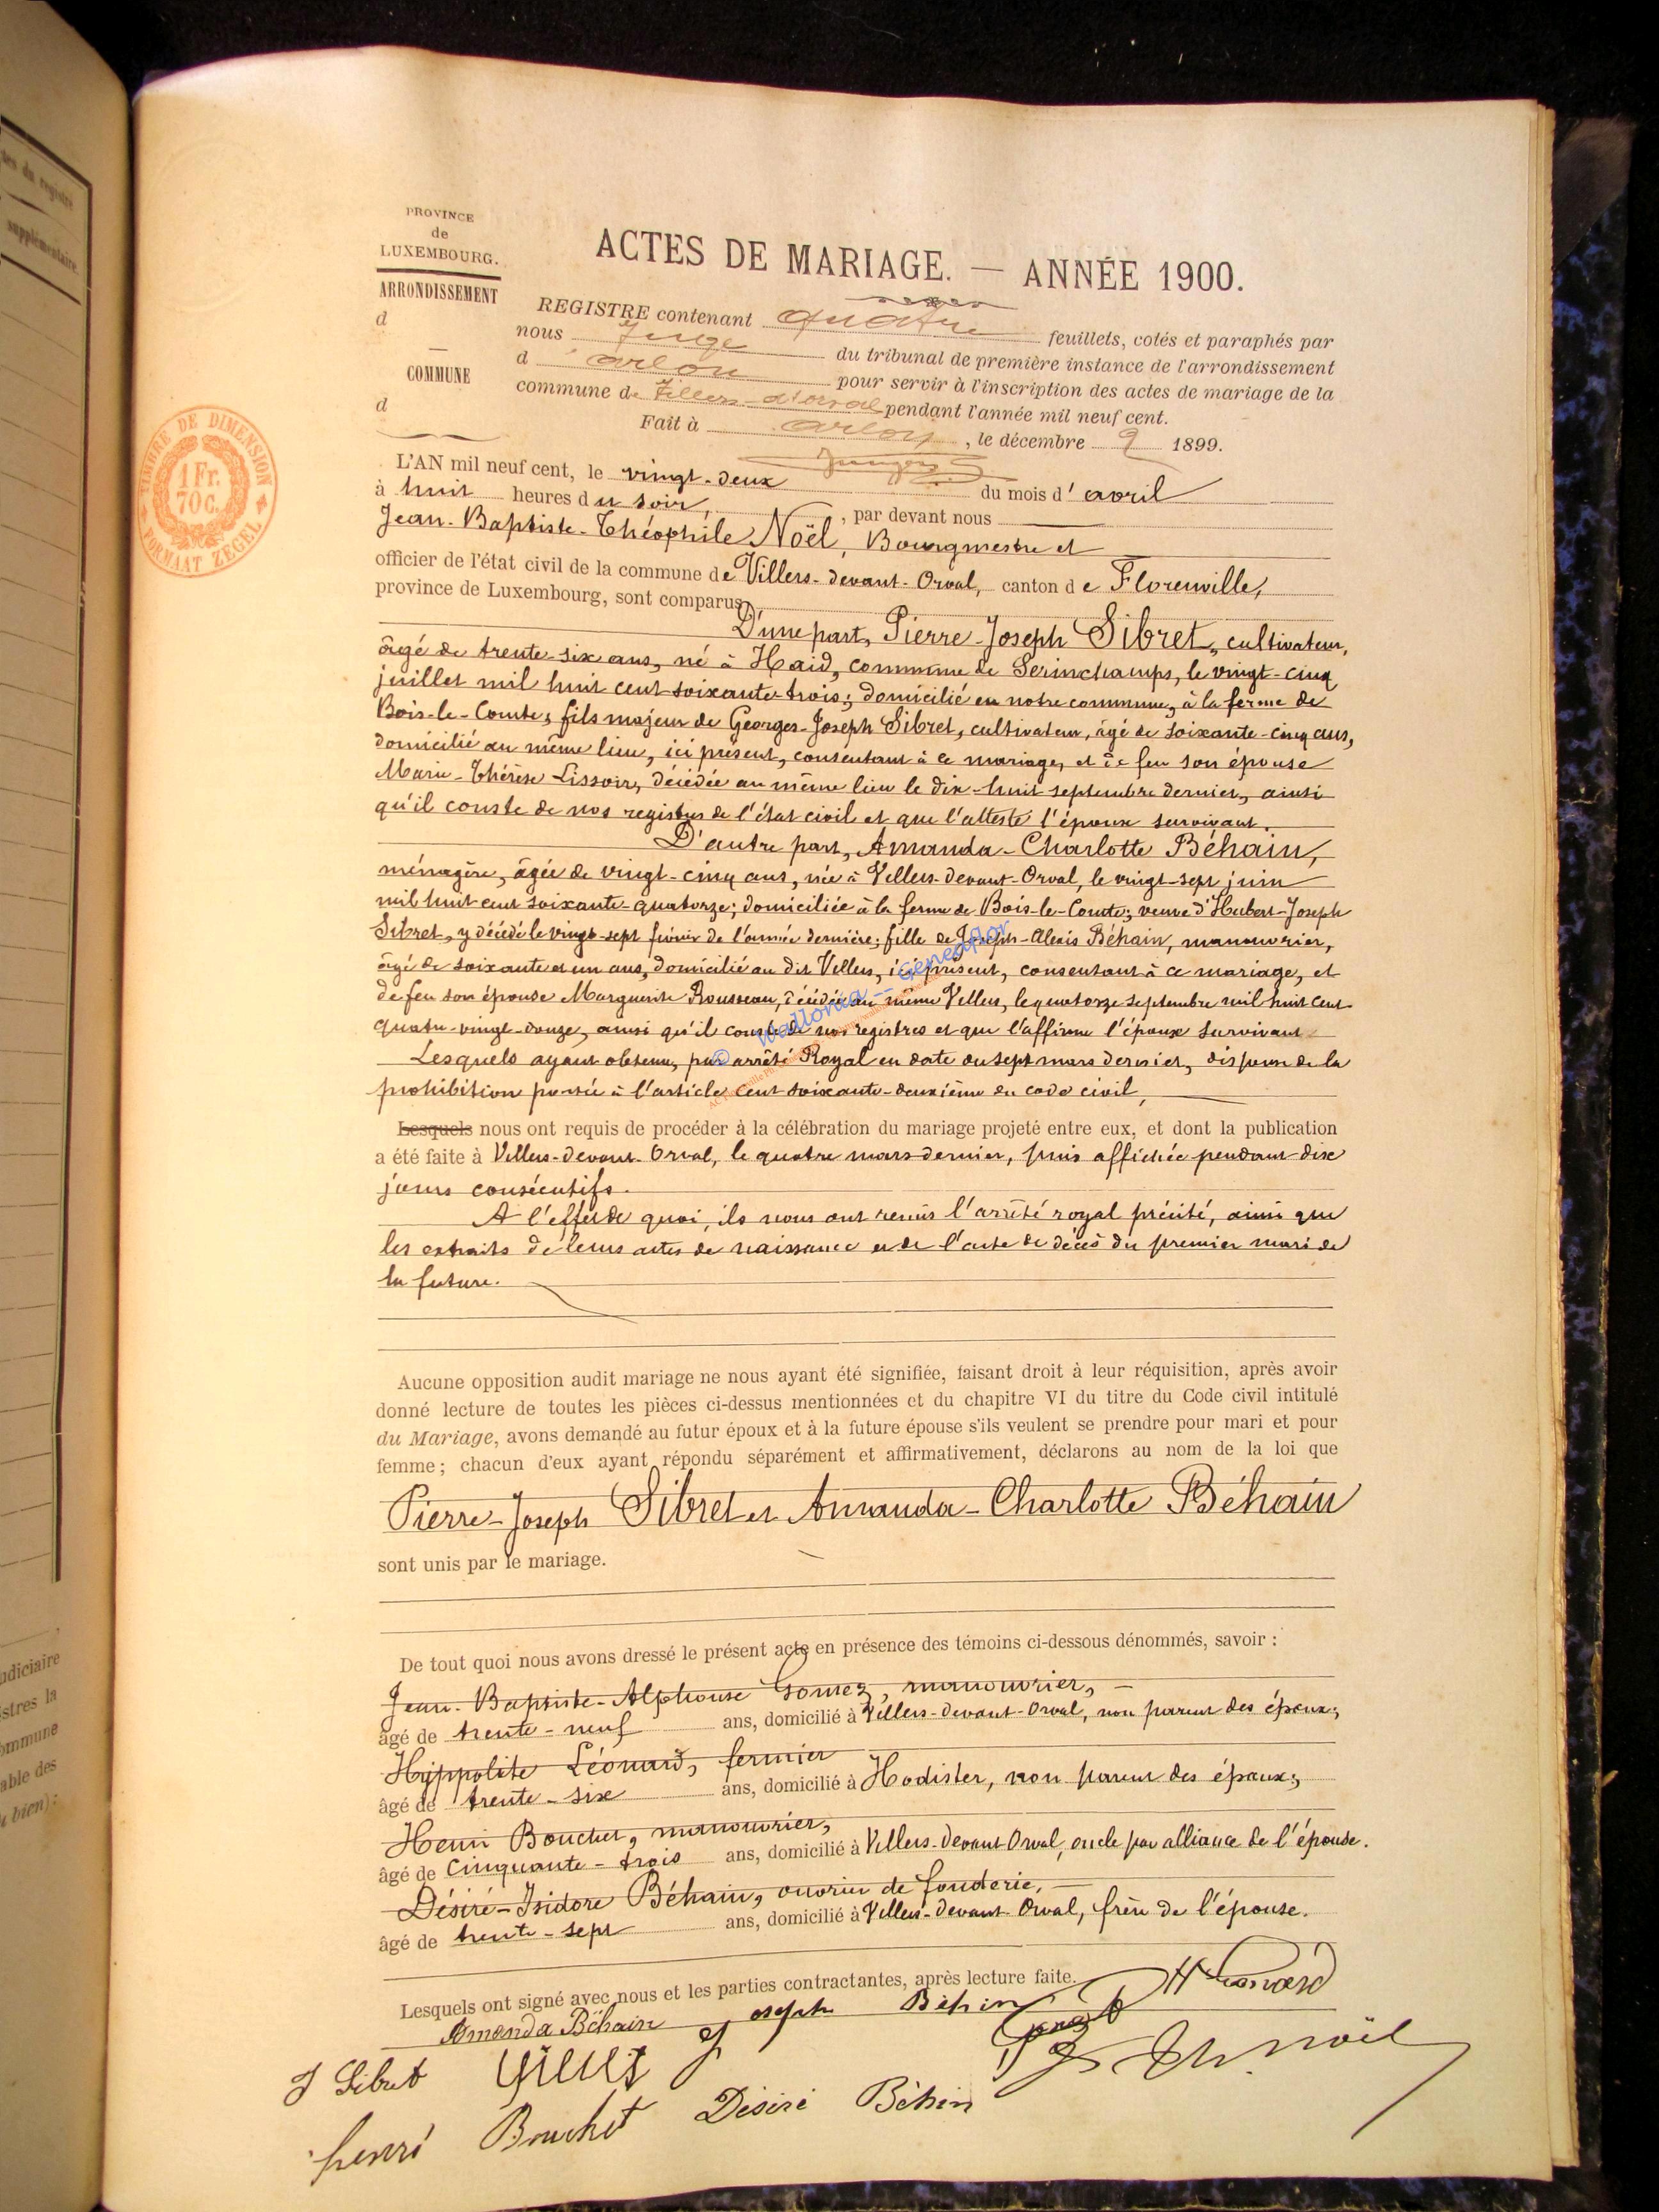 tes du registre
supplémentaire.
udiciaire
stres la
ommune
able des
u bien) :
PROVINCE
de
LUXEMBOURG.
ARRONDISSEMENT
d
COMMUNE
d
TIMBRE DE DIMENSION
1 Fr.
70 C.
FORMAAT ZEGEL
ACTES DE MARIAGE. — ANNÉE 1900.
REGISTRE contenant quatre feuillets, cotés et paraphés par
nous Juge du tribunal de première instance de l'arrondissement
d'arlon pour servir à l'inscription des actes de mariage de la
commune de Villers-d'orval pendant l'année mil neuf cent.
Fait à arlon, le décembre 9 1899.
L'AN mil neuf cent, le vingt-deux du mois d'avril
à huit heures du soir, , par devant nous
Jean-Baptiste-Théophile Noël, Bourgmestre et
officier de l'état civil de la commune de Villers-devant-Orval, canton de Florenville,
province de Luxembourg, sont comparus,
D'une part, Pierre-Joseph Sibret, cultivateur,
âgé de trente-six ans, né à Haid, commune de Serinchamps, le vingt-cinq
juillet mil huit cent soixante-trois; domicilié en notre commune, à la ferme de
Bois-le-Comte, fils majeur de Georges-Joseph Sibret, cultivateur, âgé de soixante-cinq ans,
domicilié au même lieu, ici présent, consentant à ce mariage, et de feu son épouse
Marie-Thérèse Lissoir, décédée au même lieu le dix-huit septembre dernier, ainsi
qu'il conste de nos registres de l'état civil et que l'atteste l'époux survivant.
D'autre part, Amanda-Charlotte Béhain,
ménagère, âgée de vingt-cinq ans, née à Villers-devant-Orval, le vingt-sept juin
mil huit cent soixante-quatorze; domiciliée à la ferme de Bois-le-Comte; veuve d'Hubert-Joseph
Sibret, y décédé le vingt-sept février de l'année dernière; fille de Joseph-Alexis Béhain, manouvrier,
âgé de soixante et un ans, domicilié au dit Villers, ici présent, consentant à ce mariage, et
de feu son épouse Marguerite Rousseau, décédée au même Villers, le quatorze septembre mil huit cent
quatre-vingt-douze, ainsi qu'il conste de nos registres et que l'affirme l'époux survivant
© Wallonia -- Geneaflor
Lesquels ayant obtenu, par arrêté Royal en date du sept mars dernier, dispense de la
prohibition portée à l'article cent soixante-deuxième du code civil,
Lesquels nous ont requis de procéder à la célébration du mariage projeté entre eux, et dont la publication
a été faite à Villers-devant-Orval, le quatre mars dernier, puis affichée pendant dix
jours consécutifs.
A l'effet de quoi, ils nous ont remis l'arrêté royal précité, ainsi que
les extraits de leurs actes de naissance et de l'acte de décès du premier mari de
la future.
Aucune opposition audit mariage ne nous ayant été signifiée, faisant droit à leur réquisition, après avoir
donné lecture de toutes les pièces ci-dessus mentionnées et du chapitre VI du titre du Code civil intitulé
du Mariage, avons demandé au futur époux et à la future épouse s'ils veulent se prendre pour mari et pour
femme; chacun d'eux ayant répondu séparément et affirmativement, déclarons au nom de la loi que
Pierre-Joseph Sibret et Amanda-Charlotte Béhain
sont unis par le mariage.
De tout quoi nous avons dressé le présent acte en présence des témoins ci-dessous dénommés, savoir :
Jean-Baptiste-Alphonse Gomez, manouvrier,
âgé de trente-neuf ans, domicilié à Villers-devant-Orval, non parent des époux;
Hyppolite Léonard, fermier
âgé de trente-six ans, domicilié à Hodister, non parent des époux;
Henri Bouchet, manouvrier,
âgé de cinquante-trois ans, domicilié à Villers-devant-Orval, oncle par alliance de l'épouse.
Désiré-Isidore Béhain, ouvrier de fonderie,
âgé de trente-sept ans, domicilié à Villers-devant-Orval, frère de l'épouse.
Lesquels ont signé avec nous et les parties contractantes, après lecture faite.
H Léonard
Amanda Béhain Joseph Béhin
J Sibret
Th. Noël
henri Bouchet Désiré Béhin